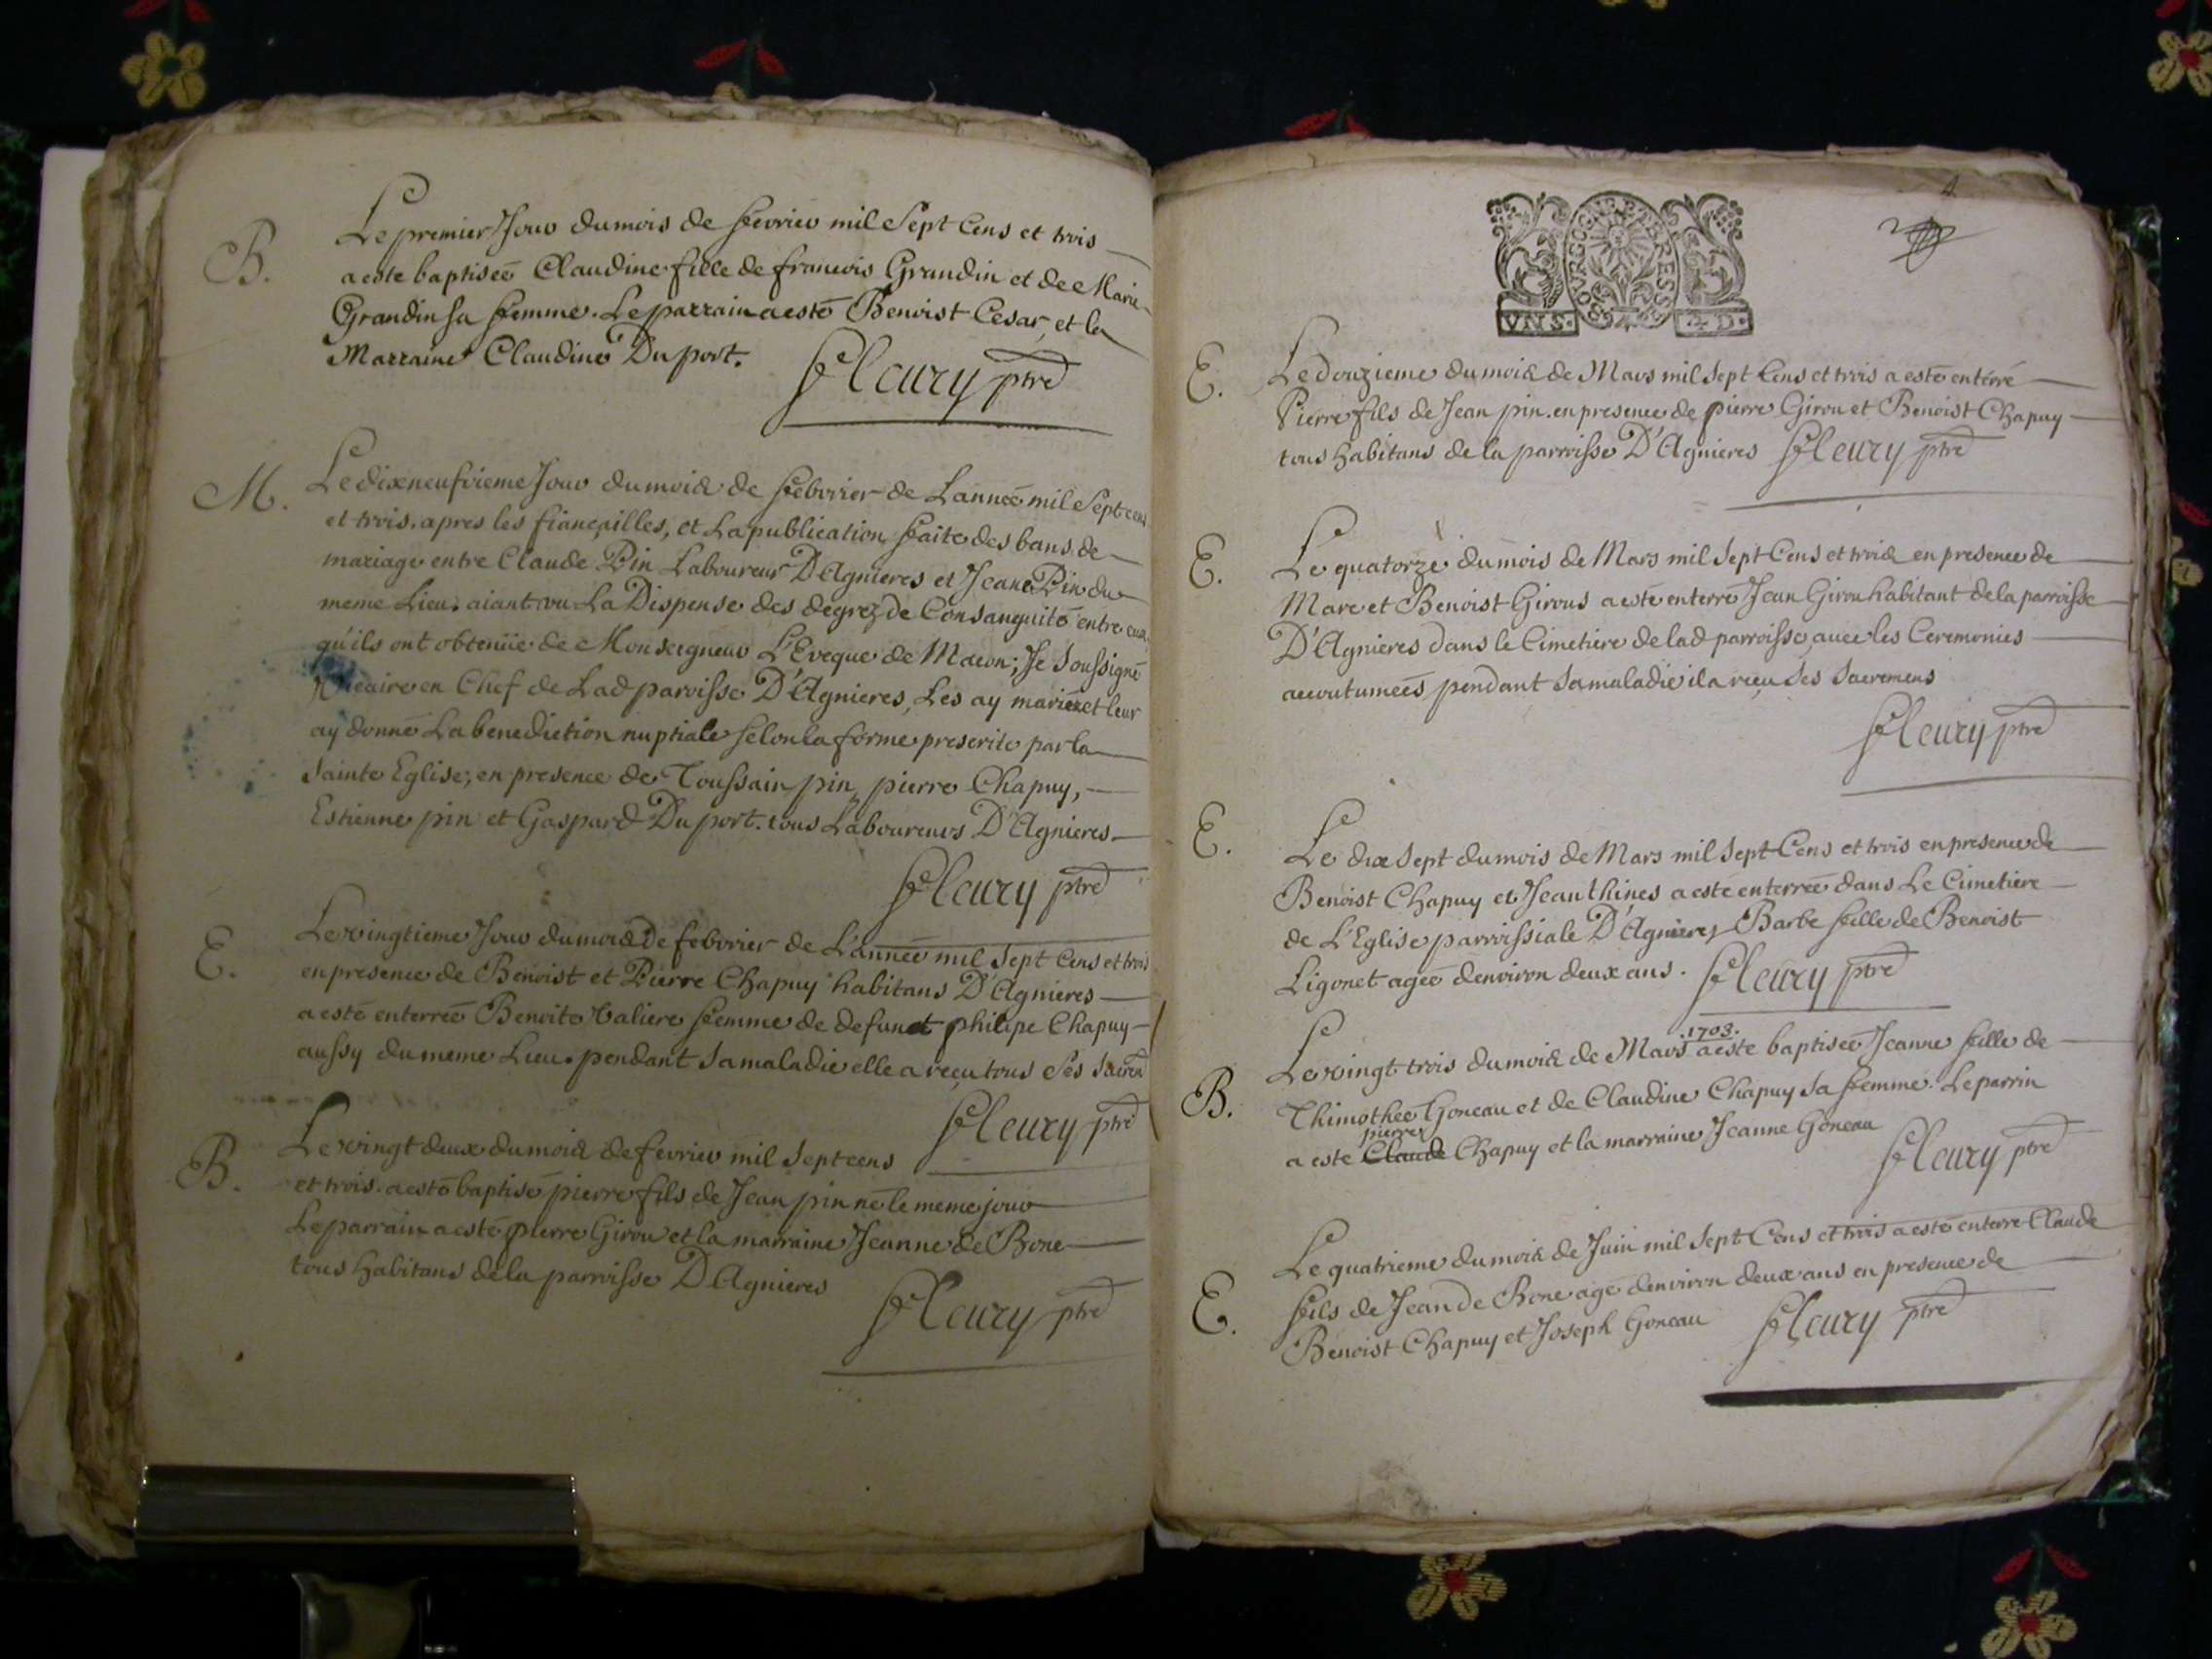 B.
Le premier Jour du mois de fevrier mil Sept Cens et trois
a este baptiseé Claudine fille de francois Grandin et de Marie
Grandin sa femme. Le parrain a esté Benoist Cesar, et la
Marraine Claudine Duport.
fleury ptre
M.
Le dixneufvieme Jour du mois de febvrier de Lanneé mil Sept cens
et trois. apres les fiançailles, et La publication faite des bans de
mariage entre Claude Pin Laboureur D'Agnieres et Jeane Pin du
meme Lieu. aiant vu La Dispense des degrez de Consanguité entre eux,
qu'ils ont obtenüe de Monseigneur L'Eveque de Macon; Je Soussigné
Vicaire en Chef de Lad parroisse D'Agnieres, Les ay mariez et leur
ay donné La benediction nuptiale selon la forme prescrite par la
Sainte Eglise, en presence de Toussain pin, pierre Chapuy,
Estienne pin et Gaspard Duport. tous Laboureurs D'Agnieres
fleury ptre
E.
Le vingtieme Jour du mois De febvrier de L'anneé mil Sept Cens et trois
en presence de Benoist et Pierre Chapuy habitans D'Agnieres
a esté enterreé Benoite Valiere femme de defunct philipe Chapuy
aussy du meme Lieu. pendant Sa maladie elle a reçu tous Ses Sacrem
fleury ptre
B.
Le vingt deux du mois de fevrier mil Sept cens
et trois. a esté baptisé pierre fils de Jean pin né le meme jour
Le parrain a esté pierre Girou et la marraine Jeanne de Bone
tous habitans de la parroisse D'Agnieres
fleury ptre
4.
BOVRGOG ET BRESSE
VN S. 4 D.
E.
Le douzieme du mois de Mars mil Sept Cens et trois a esté enterré
Pierre fils de Jean pin. en presence de pierre Girou et Benoist Chapuy
tous habitans de la parroisse D'Agnieres fleury ptre
E.
Le quatorze du mois de Mars mil Sept Cens et trois en presence de
Marc et Benoist Girous a esté enterré Jean Girou habitant de la parroisse
D'Agnieres dans le Cimetiere de lad parroisse, avec les Ceremonies
accoutumeés pendant Sa maladie il a reçu Ses Sacremens
fleury ptre
E.
Le dix Sept du mois de Mars mil Sept Cens et trois en presence de
Benoist Chapuy et Jean thines a esté enterreé dans Le Cimetiere
de L'Eglise parroissiale D'Agnieres Barbe fille de Benoist
Ligonet ageé denviron deux ans. fleury ptre
B.
.1703.
Le vingt trois du mois de Mars a esté baptiseé Jeanne fille de
Thimotheé Goneau et de Claudine Chapuy Sa femme. Le parrin
pierre
a este Claude Chapuy et la marraine Jeanne Goneau
fleury ptre
E.
Le quatrieme du mois de Juin mil Sept Cens et trois a esté enterré Claude
fils de Jean de Bone agé denviron deux ans en presence de
Benoist Chapuy et Joseph Goneau fleury ptre